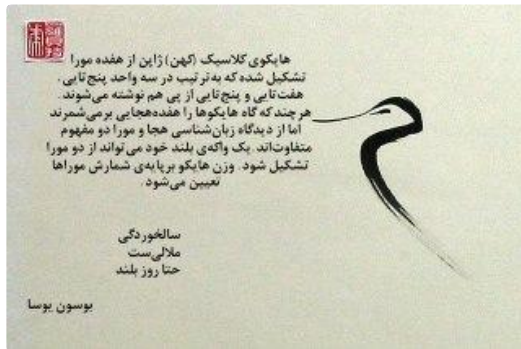 هایکوی کلاسیک (کهن) ژاپن از هفده مورا
تشکیل شده که به‌ترتیب در سه واحد پنج‌تایی،
هفت‌تایی و پنج‌تایی از پی هم نوشته می‌شوند.
هرچند که گاه هایکوها را هفده‌هجایی برمی‌شمرند
اما از دیدگاه زبان‌شناسی هجا و مورا دو مفهوم
متفاوت‌اند. یک واکه‌ی بلند خود می‌تواند از دو مورا
تشکیل شود. وزن هایکو برپایه‌ی شمارش موراها
تعیین می‌شود.
سالخوردگی
ملالی‌ست
حتا روز بلند
بوسون یوسا